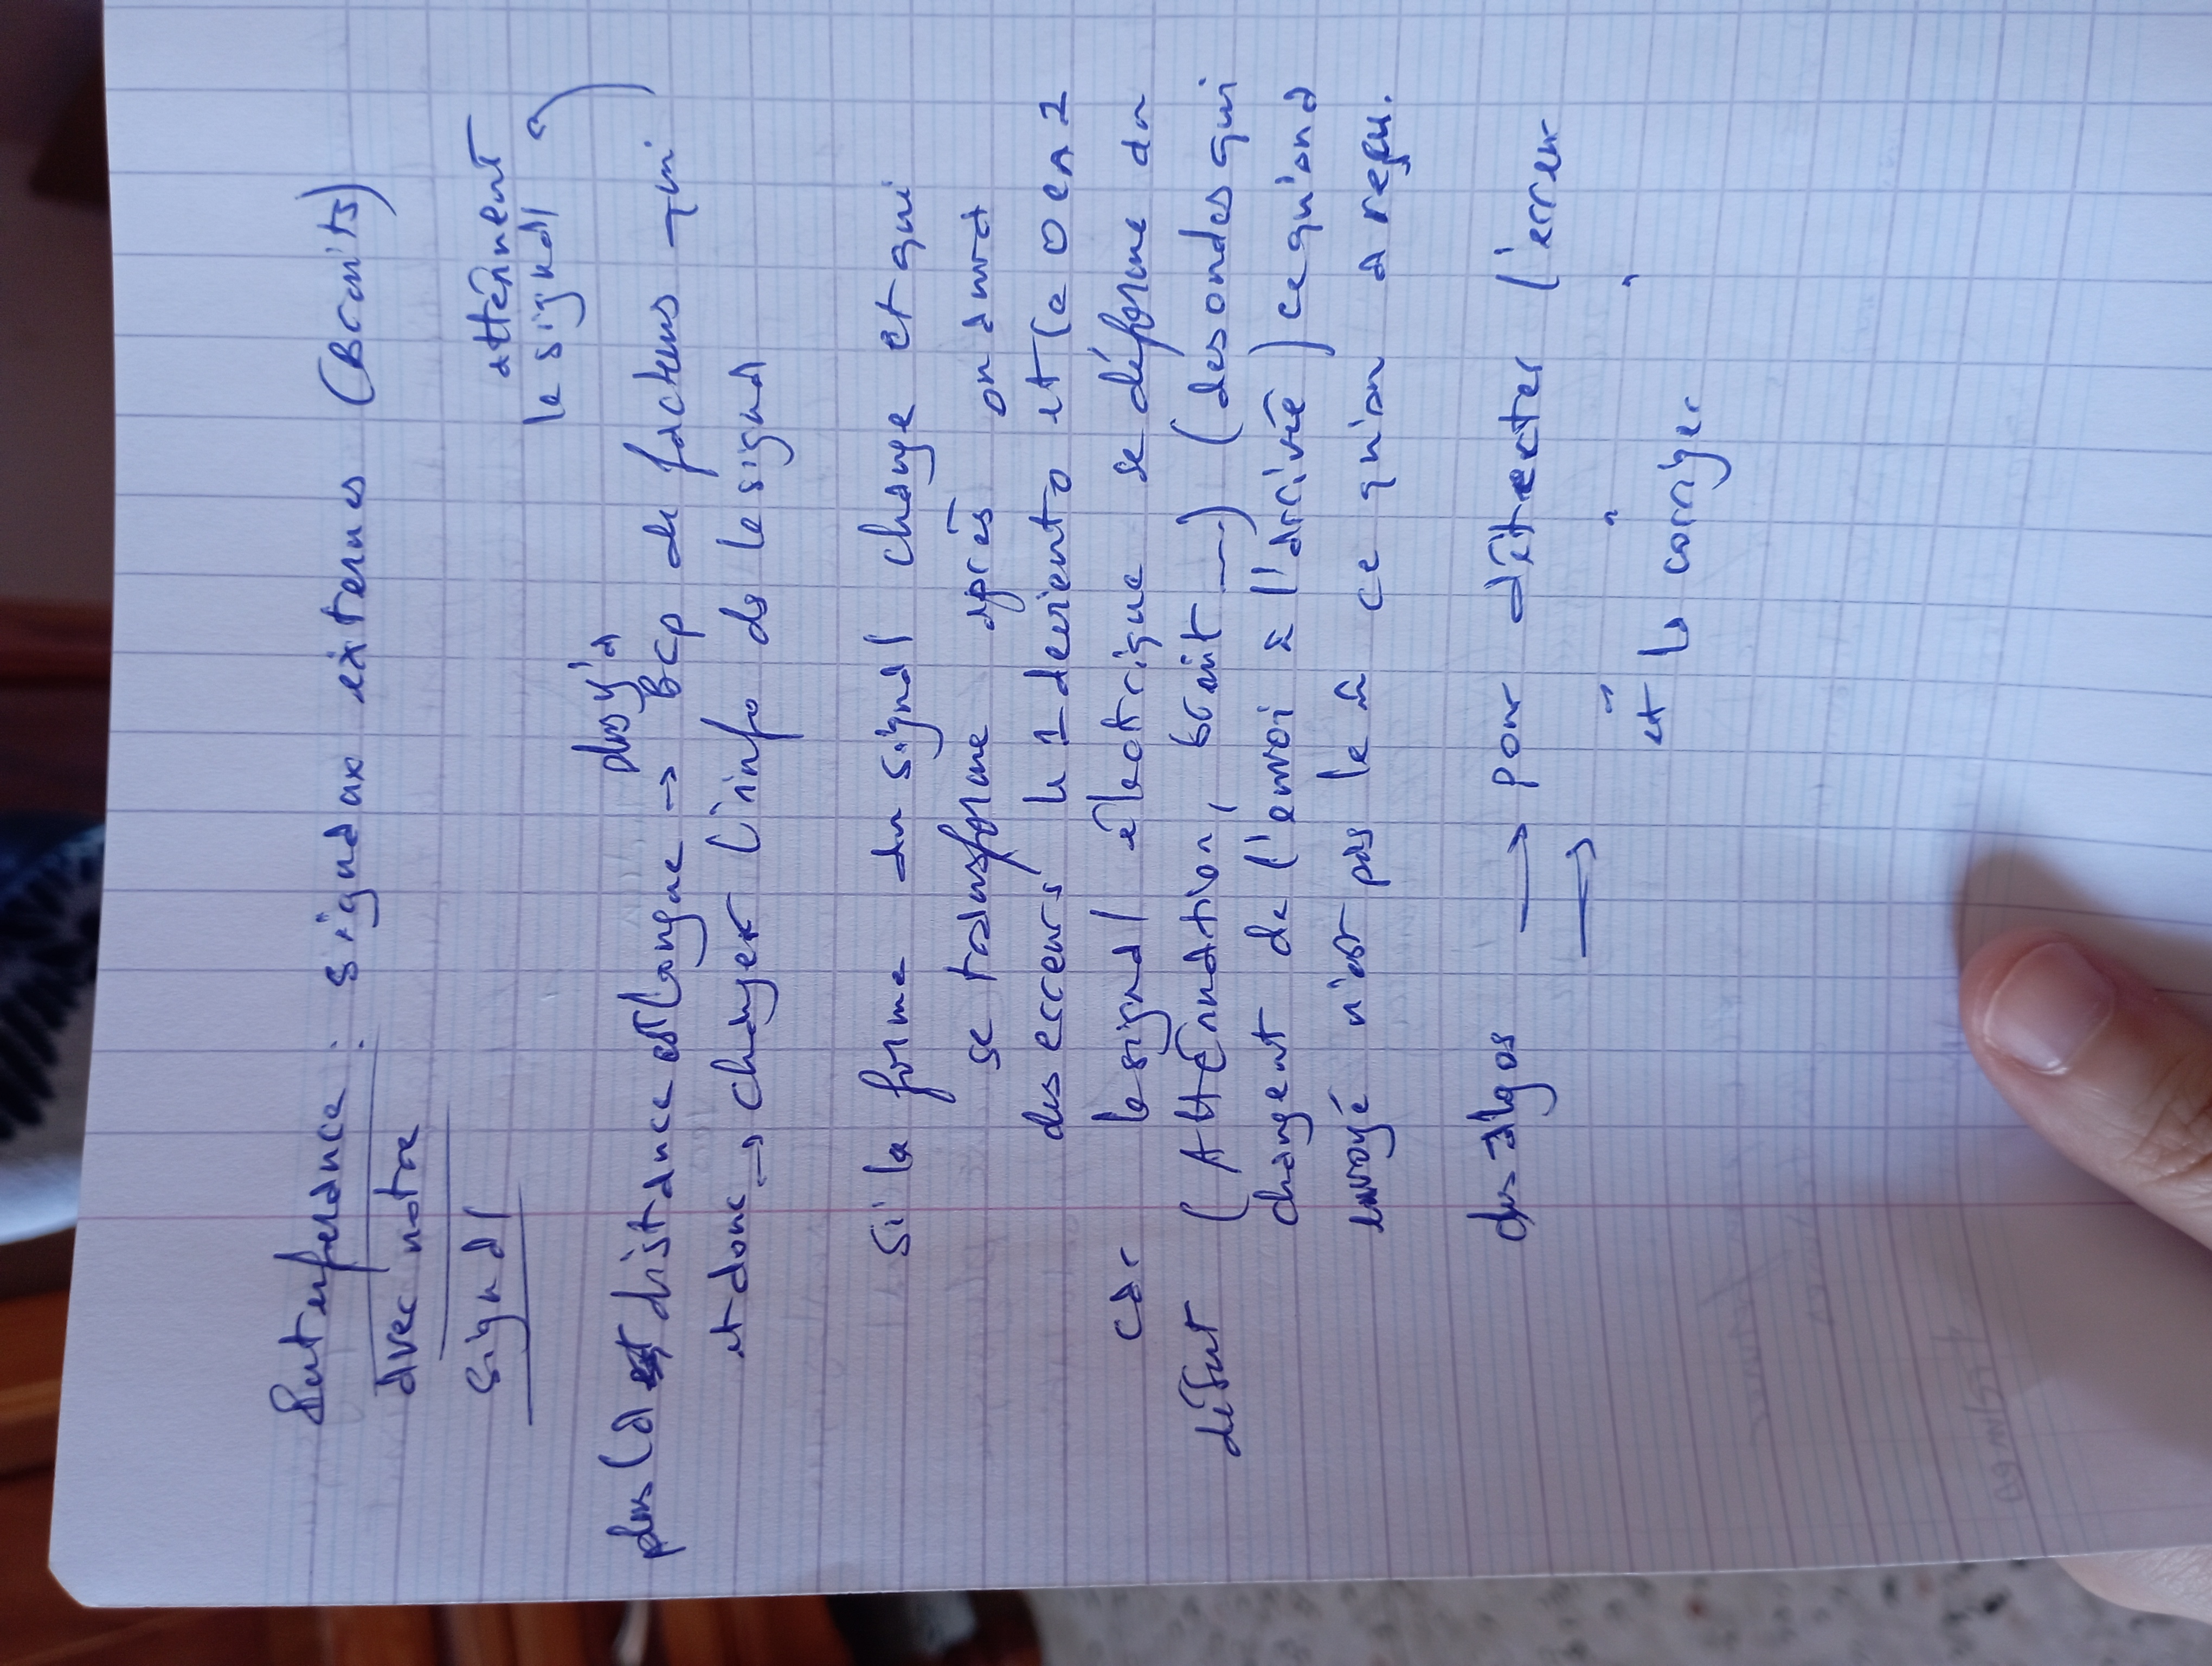 Interferance : signaux externes (Bruits)
avec notre
signal
atténuent
le signal
plus y'a
plus la distance est longue → Bcp de facteurs qui
et donc → changer l'info ds le signal
si la forme du signal change et qui
se transforme après on aura
des erreurs le 1 devient 0 et le 0 en 1
car le signal électrique se déforme du
début (Atténuation, bruit ...) (des ondes qui
changent de l'envoi à l'arrivée) ce qu'on a
envoyé n'est pas le m̂ ce qu'on a reçu.
des algos → pour détecter l'erreur
→
et la corriger